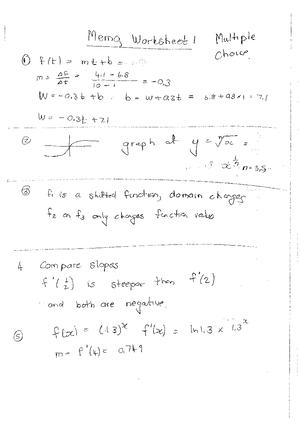 Memo Worksheet 1 Multiple Choice
① f(t) = mt + b =
m = Δf/Δt = (4.1 - 6.8)/(10 - 1) = -0.3
W = -0.3t + b . b = W + 0.3t = 6.8 + 0.3×1 = 7.1
W = -0.3t + 7.1
② graph of y = ⁿ√x =
x^(1/n) n = 3,5..
③ f₁ is a shifted function, domain changes
f₂ or f₃ only changes function values
4 Compare slopes
f'(½) is steeper than f'(2)
and both are negative
⑤ f(x) = (1.3)^x f'(x) = ln1.3 × 1.3^x
m = f'(4) = 0.749